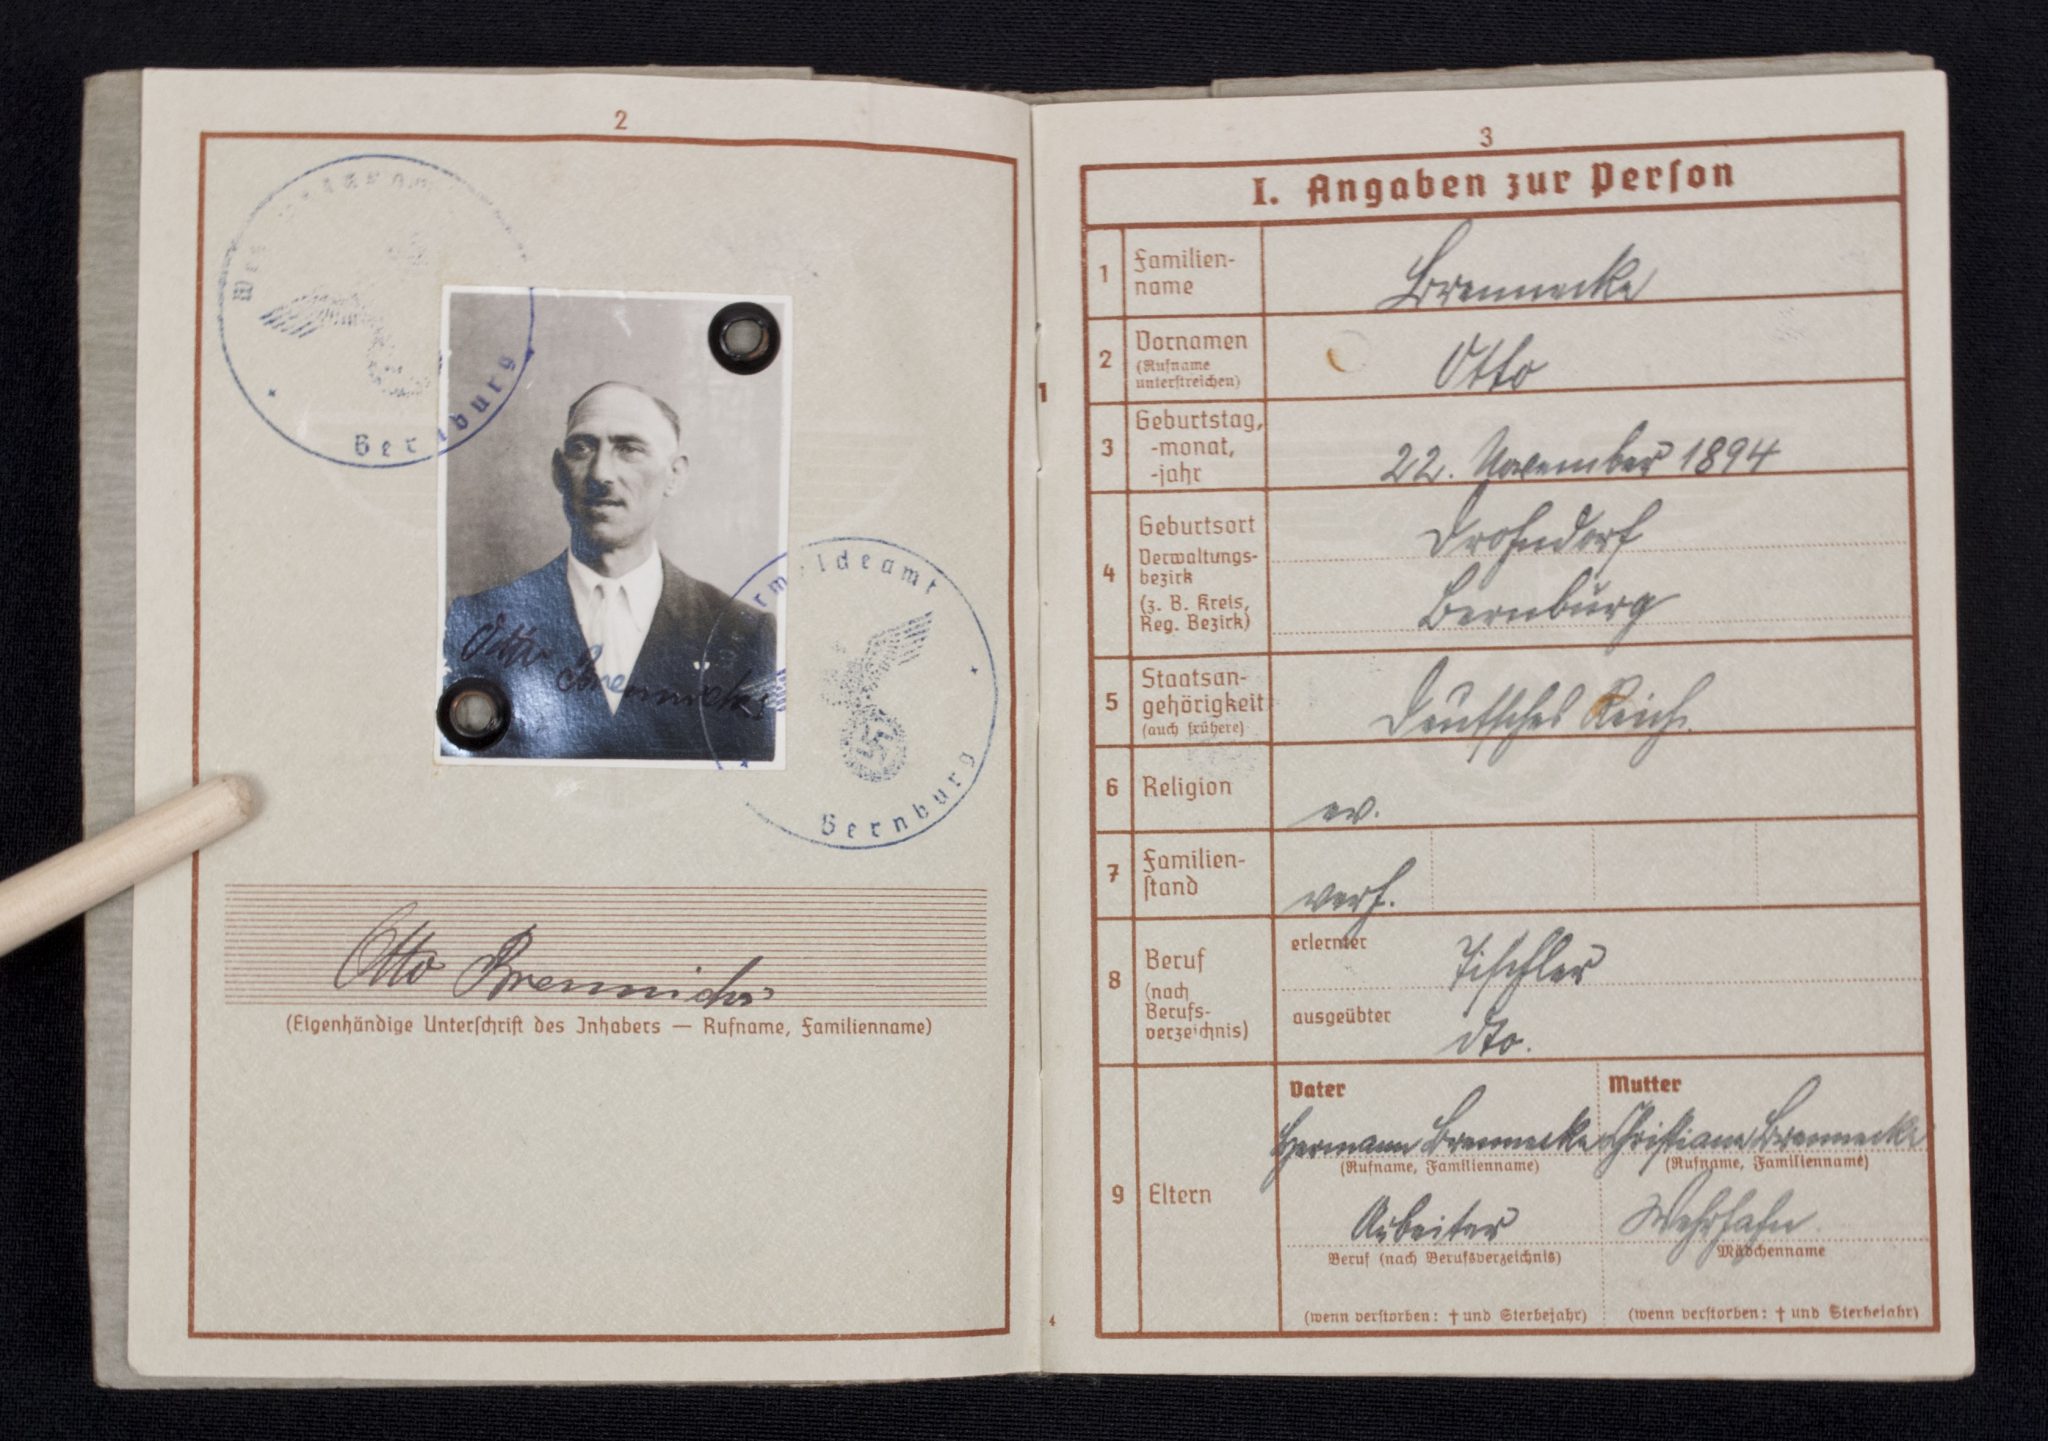 2
Bernburg
Otto Brennecke
Wehrmeldeamt
Bernburg
Otto Brennecke
(Eigenhändige Unterschrift des Inhabers — Rufname, Familienname)
3
I. Angaben zur Person
1 Familien-
name
Brennecke
2 Vornamen
(Rufname
unterstreichen)
Otto
3 Geburtstag,
-monat,
-jahr
22. November 1894
4 Geburtsort
Verwaltungs-
bezirk
(z. B. Kreis,
Reg. Bezirk)
Drohndorf
Bernburg
5 Staatsan-
gehörigkeit
(auch frühere)
Deutsches Reich.
6 Religion
ev.
7 Familien-
stand
verh.
8 Beruf
(nach
Berufs-
verzeichnis)
erlernter Tischler
ausgeübter dto.
9 Eltern
Vater
Hermann Brennecke
(Rufname, Familienname)
Arbeiter
Beruf (nach Berufsverzeichnis)
(wenn verstorben: † und Sterbejahr)
Mutter
Christiane Brennecke
(Rufname, Familienname)
Wehrhahn
Mädchenname
(wenn verstorben: † und Sterbejahr)
1
4